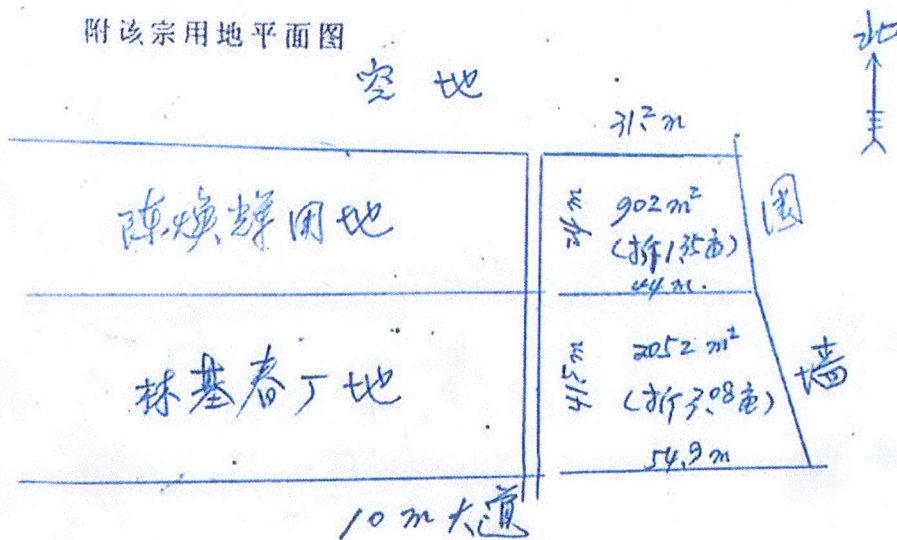 附该宗用地平面图
北
空地
31.2m
陈焕辉用地
24m
902m²
(折1.35亩)
44m.
围
墙
林基春厂地
41.5m
2052m²
(折3.08亩)
54.9m
10m大道